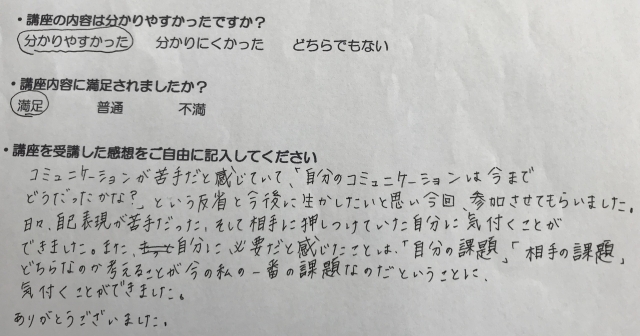 ・講座の内容は分かりやすかったですか？
分かりやすかった 分かりにくかった どちらでもない
・講座内容に満足されましたか？
満足 普通 不満
・講座を受講した感想をご自由に記入してください
コミュニケーションが苦手だと感じていて、「自分のコミュニケーションは今まで
どうだったかな？」という反省と今後に生かしたいと思い今回、参加させてもらいました。
日々、自己表現が苦手だった、そして相手に押しつけていた自分に気付くことが
できました。また、自分に必要だと感じたことは、「自分の課題」「相手の課題」
どちらなのか考えることが今の私の一番の課題なのだということに、
気付くことができました。
ありがとうございました。